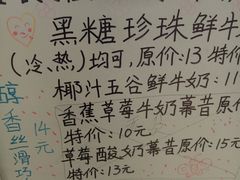 黑糖珍珠鲜牛
(冷、热)均可,原价:13 特价
椰汁五谷鲜牛奶:11
香蕉草莓牛奶幕昔原价
特价:10元
草莓酸奶幕昔原价:15元
特价:13元
醇香丝滑巧
14元